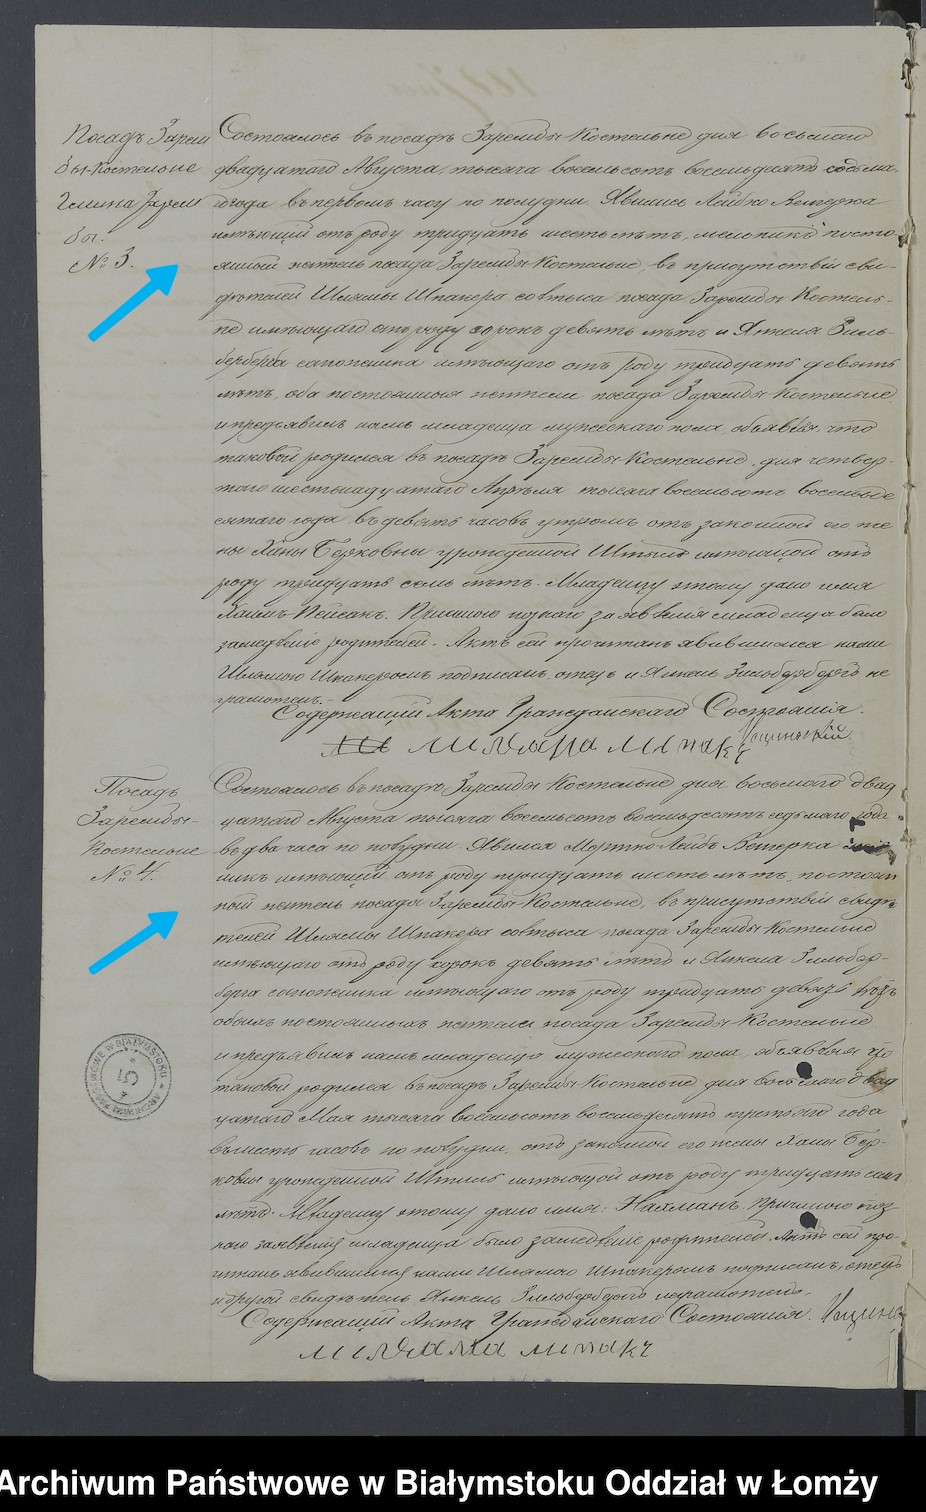 Посадъ Зарем
бы-Костельне
Гмина Зарем
бы.
№ 3.
Состоялось въ посадѣ Заремби Костельне дня восьмаго
двадцатаго Августа, тысяча восемьсотъ восемьдесятъ седьма
го года въ первомъ часу по полудни. Явились Лейбко
имѣющій отъ роду тридцать шесть лѣтъ, мельникъ посто
янный житель посада Зарембы Костельне, въ присутствіи сви-
дѣтелей Шлямы Шпакера солтыса посада Зарембы Костель-
не имѣющаго отъ роду сорокъ девять лѣтъ и Янкеля Зиль-
берберга сапожника имѣющаго отъ роду тридцать девять
лѣтъ, оба постоянныя жители посада Зарембы Костельне
и предъявилъ намъ младенца мужескаго пола, объявляя, что
таковой родился въ посадѣ Зарембы Костельне, дня четвер-
таго шестнадцатаго Апрѣля тысяча восемьсотъ восемьде
сятаго года въ девять часовъ утромъ отъ законной его же
ны Ханы Берковны урожденной имѣющей отъ
роду тридцать семь лѣтъ. Младенцу этому дано имя
Хаимъ-Пейсакъ. Причиною поздняго заявленія младенца было
замедленіе родителей. Актъ сей прочитанъ явившимся нами
Шлямою Шпакеромъ подписанъ, отецъ и Янкель Зильберберъгъ не
грамотенъ.
Содержащій Акта Гражданскаго Состоянія.
Посадъ
Зарембы-
Костельне
№ 4.
Состоялось въ посадѣ Зарембы Костельне дня восьмаго двад
цатаго Августа тысяча восемьсотъ восемьдесятъ седьмаго года
въ два часа по полудни. Явился Лейбъ Ветерка
никъ имѣющій отъ роду тридцать шесть лѣтъ, постоян
ный житель посада Зарембы-Костельне, въ присутствіи свидѣ
телей Шлямы Шпакера солтыса посада Зарембы Костельне
имѣющаго отъ роду сорокъ девять лѣтъ и Янкеля Зильбер-
берга сапожника имѣющаго отъ роду тридцать девять лѣтъ
обоихъ постоянныхъ жители посада Зарембы Костельне
и предъявилъ намъ младенца мужескаго пола, объявляя что
таковой родился въ посадѣ Зарембы Костельне дня восьмаго двад
цатаго Мая тысяча восемьсотъ восемьдесятъ третьяго года
въ шесть часовъ по полудни, отъ законной его жены Ханы Бер-
ковны урожденной имѣющей отъ роду тридцать семь
лѣтъ. Младенцу этому дано имя: Нахманъ. Причиною поз
няго заявленія младенца было замедленіе родителей. Актъ сей про-
читанъ явившимся нами Шлямою Шпакеромъ подписанъ, отецъ
и другой свидѣтель Янкель Зильберберъгъ неграмотенъ.
Содержащій Акта Гражданскаго Состоянія.
ARCHIWUM PAŃSTWOWE W BIAŁYMSTOKU
51
Archiwum Państwowe w Białymstoku Oddział w Łomży